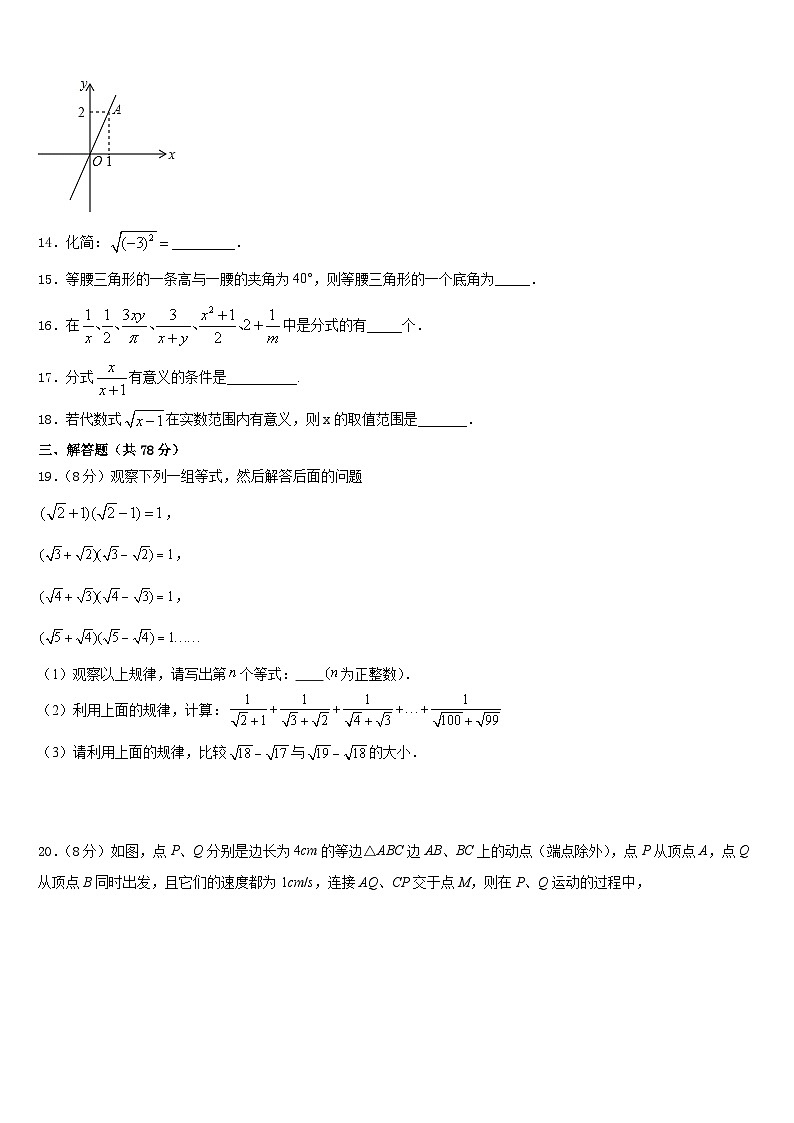 y
2 A
O 1 x
14．化简：√((−3)²) = _________．
15．等腰三角形的一条高与一腰的夹角为 40°，则等腰三角形的一个底角为_____．
16．在 1/x、1/2、3xy/π、3/(x+y)、(x²+1)/2、2+1/m 中是分式的有_____个．
17．分式 x/(x+1) 有意义的条件是__________.
18．若代数式 √(x−1) 在实数范围内有意义，则 x 的取值范围是_______．
三、解答题（共 78 分）
19．（8 分）观察下列一组等式，然后解答后面的问题
(√2+1)(√2−1)=1，
(√3+√2)(√3−√2)=1，
(√4+√3)(√4−√3)=1，
(√5+√4)(√5−√4)=1……
（1）观察以上规律，请写出第 n 个等式：____ (n 为正整数)．
（2）利用上面的规律，计算：1/(√2+1)+1/(√3+√2)+1/(√4+√3)+…+1/(√100+√99)
（3）请利用上面的规律，比较 √18−√17 与 √19−√18 的大小．
20．（8 分）如图，点 P、Q 分别是边长为 4cm 的等边△ABC 边 AB、BC 上的动点（端点除外），点 P 从顶点 A，点 Q
从顶点 B 同时出发，且它们的速度都为 1cm/s，连接 AQ、CP 交于点 M，则在 P、Q 运动的过程中，